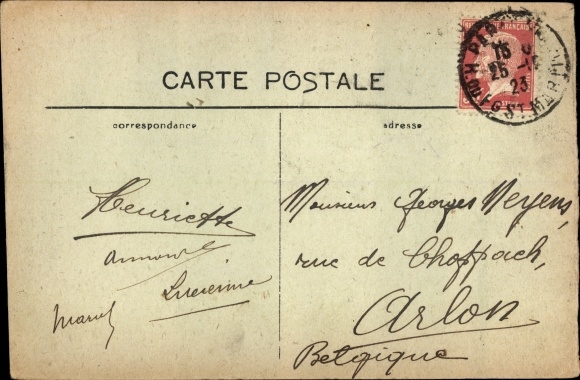 CARTE POSTALE
correspondance
adresse
Henriette
Armand
Lucienne
Marcel
Monsieur Georges Neyens,
rue de Choppach,
Arlon
Belgique
FRANÇAISE
PARIS
15
25
23
R. ST MARTIN